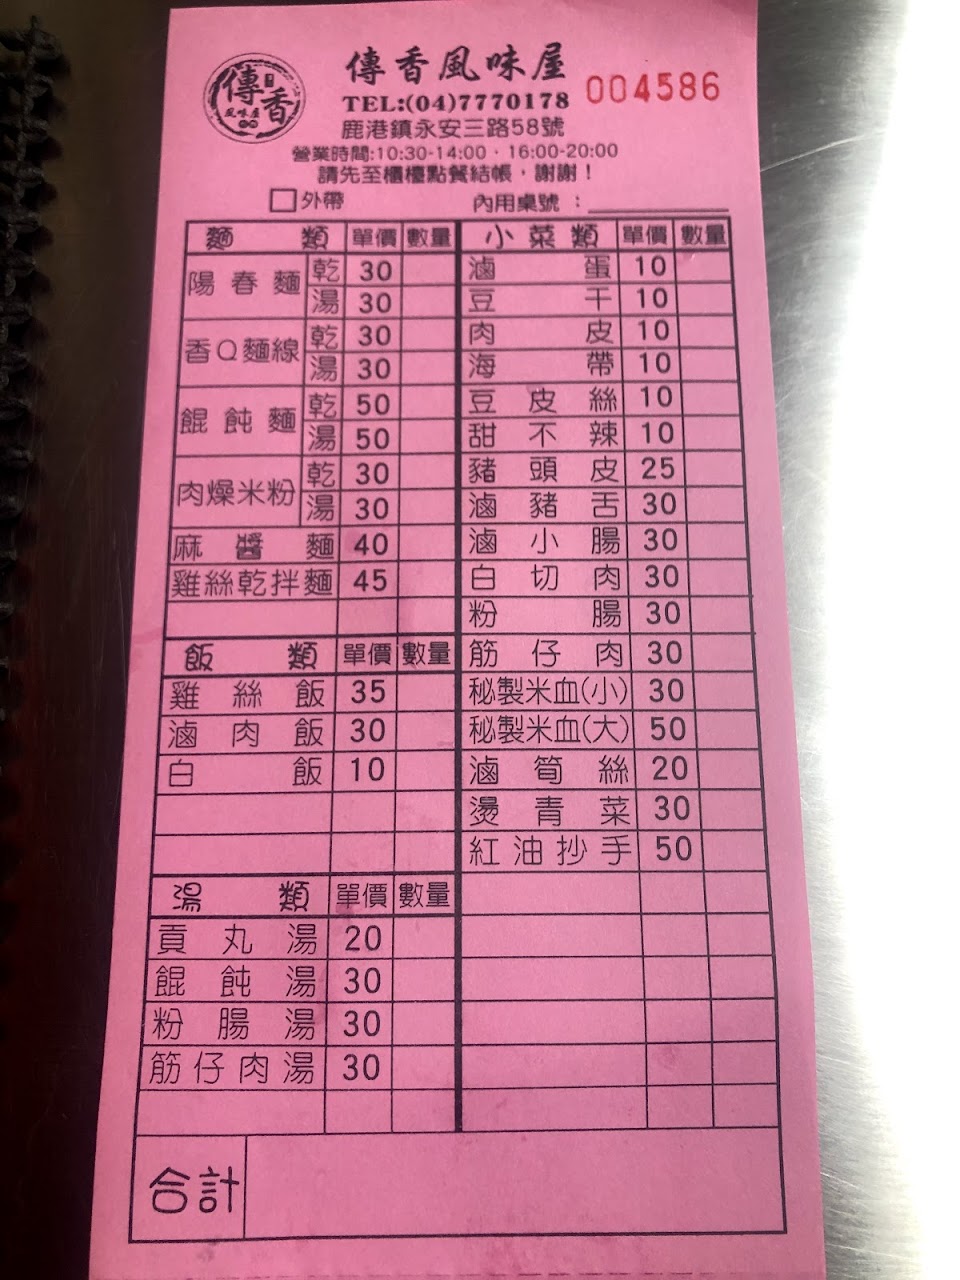 傳香風味屋
傳香
風味屋
004586
TEL:(04)7770178
鹿港鎮永安三路58號
營業時間:10:30-14:00 · 16:00-20:00
請先至櫃檯點餐結帳，謝謝！
□外帶 內用桌號：
麵類 單價 數量
陽春麵 乾 30
湯 30
香Q麵線 乾 30
湯 30
餛飩麵 乾 50
湯 50
肉燥米粉 乾 30
湯 30
麻醬麵 40
雞絲乾拌麵 45
飯類 單價 數量
雞絲飯 35
滷肉飯 30
白飯 10
湯類 單價 數量
貢丸湯 20
餛飩湯 30
粉腸湯 30
筋仔肉湯 30
小菜類 單價 數量
滷蛋 10
豆干 10
肉皮 10
海帶 10
豆皮絲 10
甜不辣 10
豬頭皮 25
滷豬舌 30
滷小腸 30
白切肉 30
粉腸 30
筋仔肉 30
秘製米血(小) 30
秘製米血(大) 50
滷筍絲 20
燙青菜 30
紅油抄手 50
合計